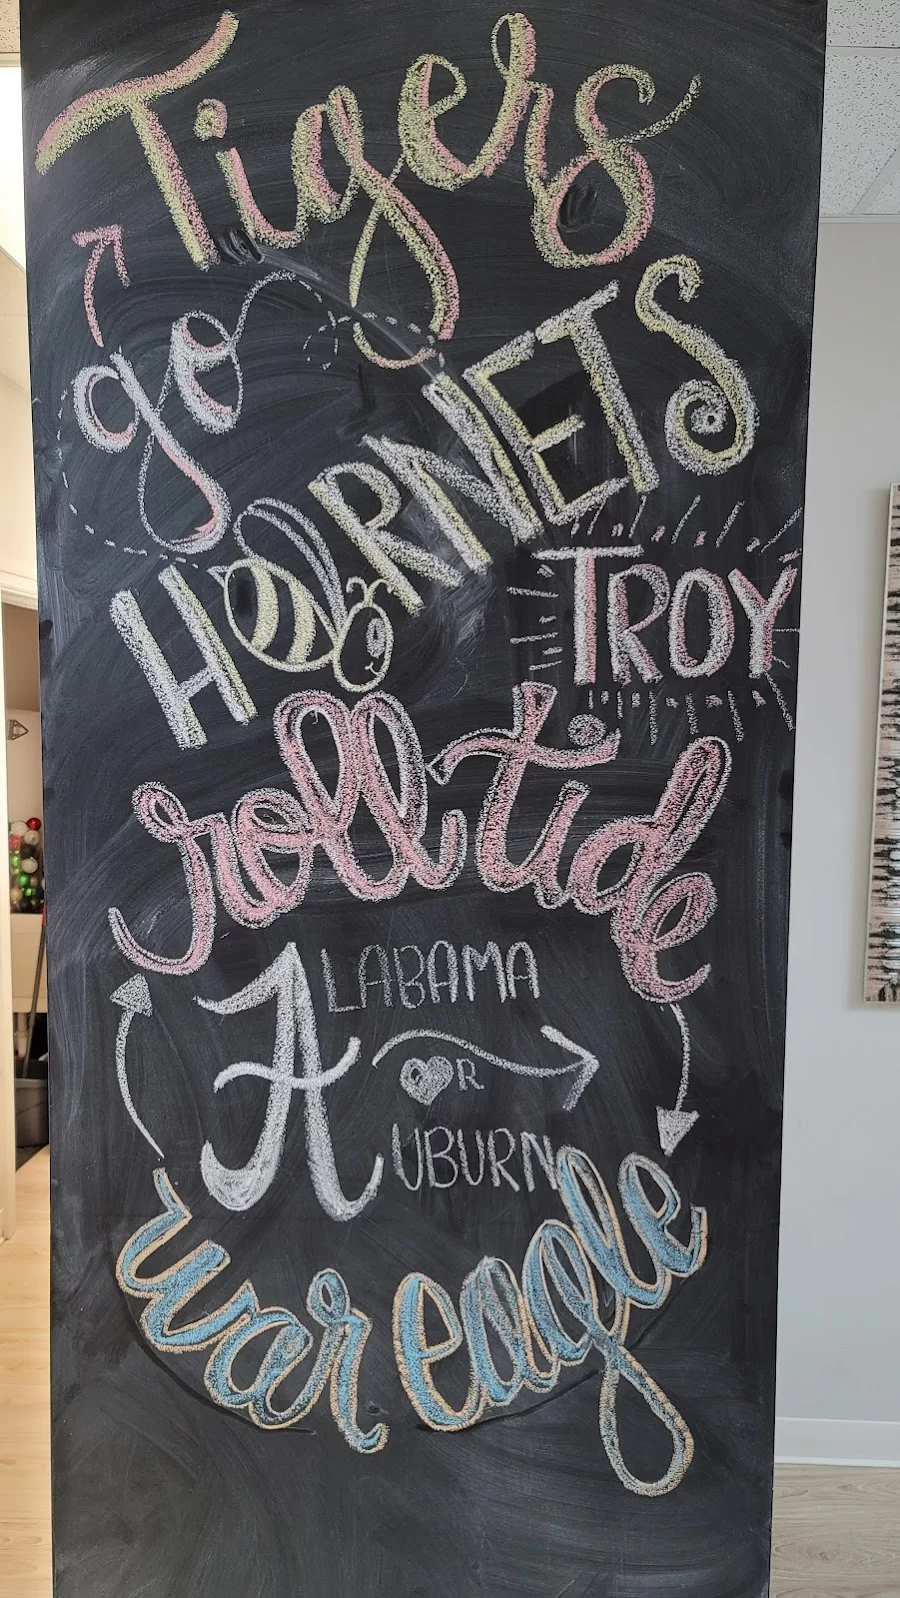 Tigers
go
HORNETS
TROY
roll tide
ALABAMA
OR
AUBURN
war eagle